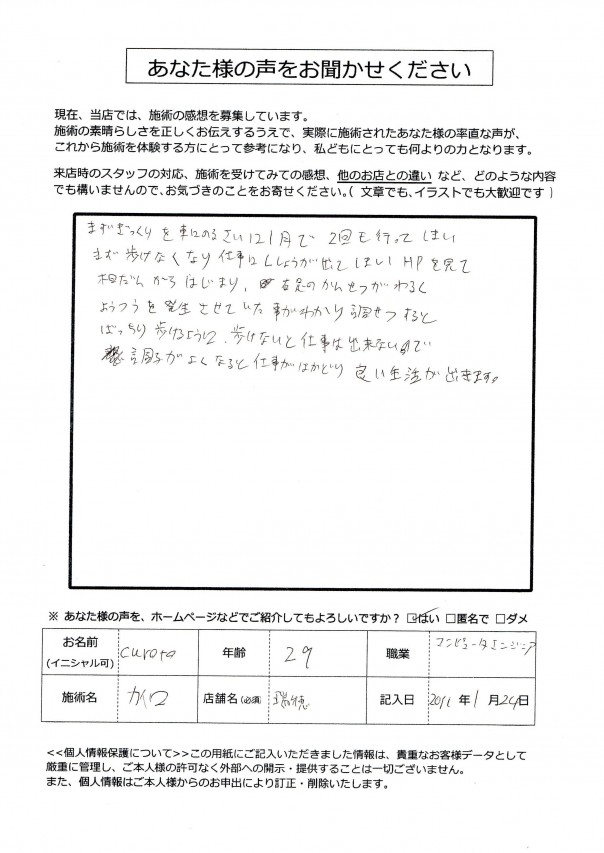 あなた様の声をお聞かせください
現在、当店では、施術の感想を募集しています。
施術の素晴らしさを正しくお伝えするうえで、実際に施術されたあなた様の率直な声が、
これから施術を体験する方にとって参考になり、私どもにとっても何よりの力となります。
来店時のスタッフの対応、施術を受けてみての感想、他のお店との違い など、どのような内容
でも構いませんので、お気づきのことをお寄せください。( 文章でも、イラストでも大歓迎です )
まずぎっくりを車にのるさい12月で 2回も行ってしまい
まず歩けなくなり仕事にししょうが出てしまいHPを見て
相だんからはじまり、右足のかんせつがわるく
ようつうを発生させていた事がわかり調せつすると
ばっちり歩けるように、歩けないと仕事は出来ないので
調子がよくなると仕事がはかどり 良い生活が出きます。
※ あなた様の声を、ホームページなどでご紹介してもよろしいですか? ☑はい □匿名で □ダメ
お名前 (イニシャル可) curora 年齢 29 職業 コンピュータエンジニア
施術名 カイロ 店舗名(必須) 瑞穂 記入日 年 1 月 24日
<<個人情報保護について>>この用紙にご記入いただきました情報は、貴重なお客様データとして
厳重に管理し、ご本人様の許可なく外部への開示・提供することは一切ございません。
また、個人情報はご本人様からのお申出により訂正・削除いたします。